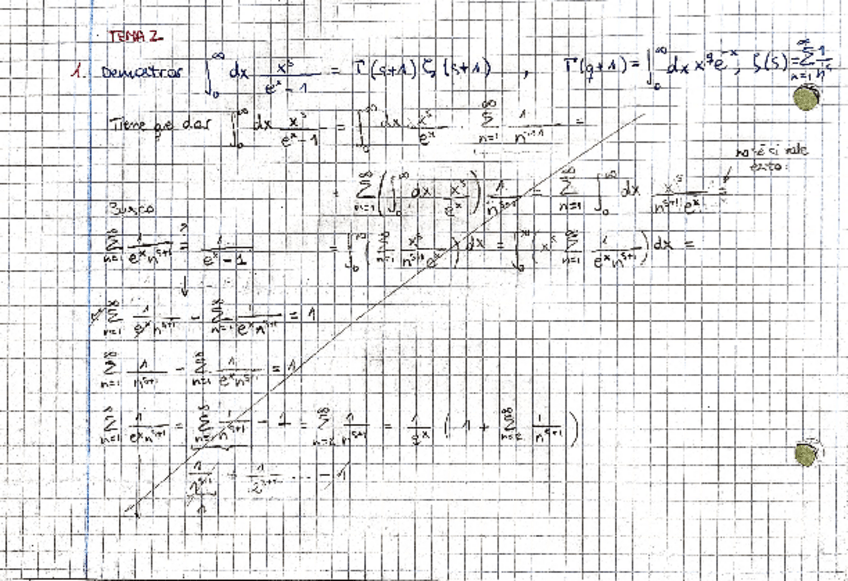 TEMA 2
1. Demostrar ∫₀^∞ dx x^s/(e^x - 1) = Γ(s+1) ζ(s+1) , Γ(q+1) = ∫₀^∞ dx x^q e^-x ; ζ(s) = ∑_{n=1}^∞ 1/n^s
Tiene que dar ∫₀^∞ dx x^s/(e^x - 1) = ∫₀^∞ dx x^s/e^x · ∑_{n=1}^∞ 1/n^{s+1} =
no sé si vale
esto:
= ∑_{n=1}^∞ (∫₀^∞ dx x^s/e^x) 1/n^{s+1} = ∑_{n=1}^∞ ∫₀^∞ dx x^s/(n^{s+1} e^x) =
= ∫₀^∞ (∑_{n=1}^∞ x^s/(n^{s+1} e^x)) dx = ∫₀^∞ (x^s ∑_{n=1}^∞ 1/(e^x n^{s+1})) dx =
Busco
∑_{n=1}^∞ 1/(e^x n^{s+1}) =? 1/(e^x - 1)
↓
e^x ∑_{n=1}^∞ 1/(e^x n^{s+1}) - ∑_{n=1}^∞ 1/(e^x n^{s+1}) = 1
∑_{n=1}^∞ 1/n^{s+1} - ∑_{n=1}^∞ 1/(e^x n^{s+1}) = 1
∑_{n=1}^∞ 1/(e^x n^{s+1}) = ∑_{n=1}^∞ 1/n^{s+1} - 1 = ∑_{n=2}^∞ 1/n^{s+1} = 1/e^x (1 + ∑_{n=2}^∞ 1/n^{s+1})
1/1^{s+1} + 1/2^{s+1} ... - 1
1